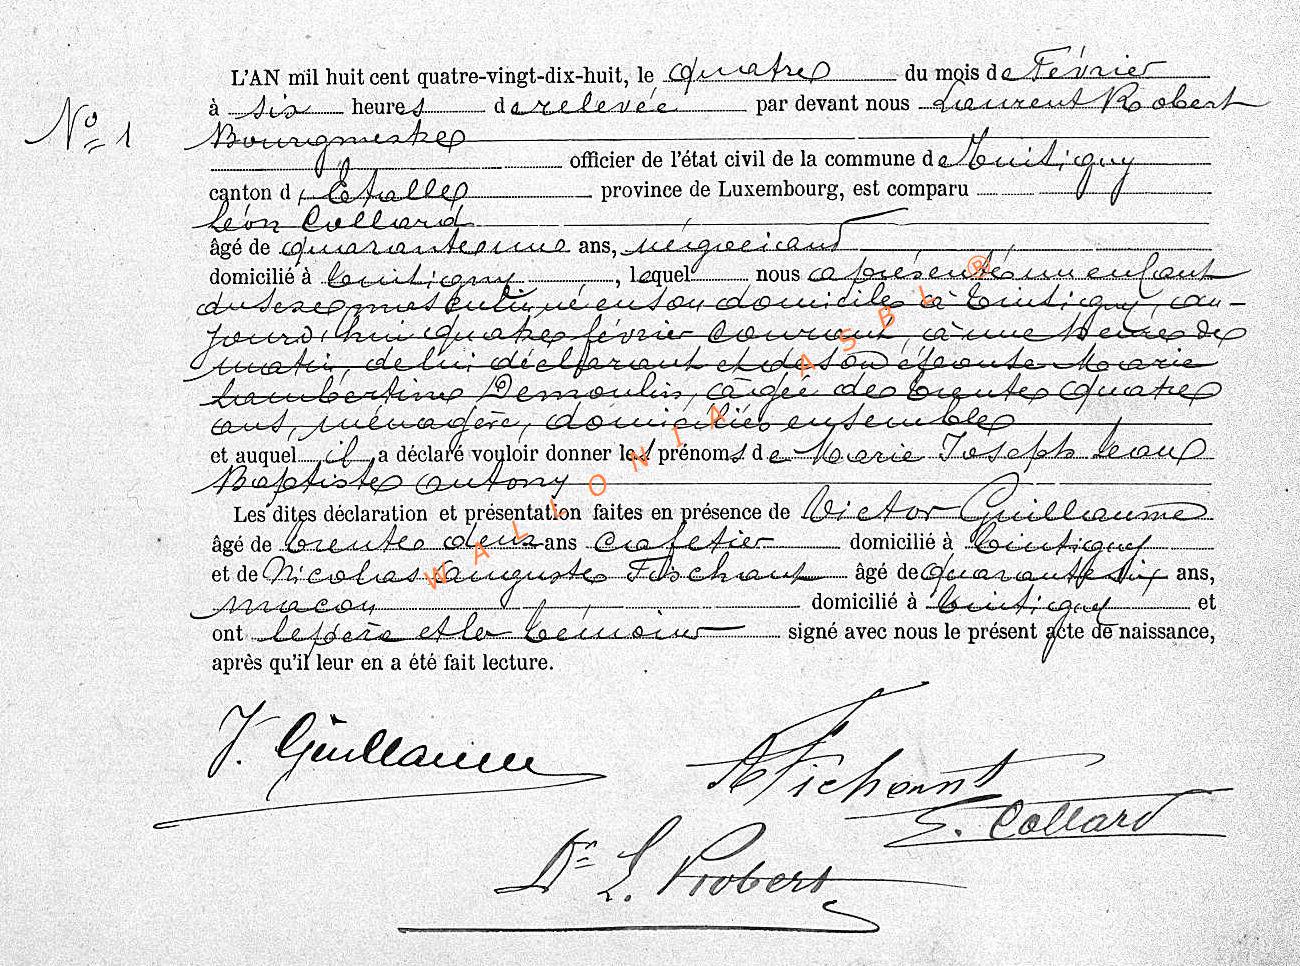 L'AN mil huit cent quatre-vingt-dix-huit, le quatre du mois de Février
à six heures de relevée par devant nous Laurent Robert
N° 1
Bourgmestre
officier de l'état civil de la commune de Tintigny
canton d'Etalle province de Luxembourg, est comparu
Léon Collard
âgé de quarante un ans, négociant
domicilié à Tintigny, lequel nous a présenté un enfant
du sexe masculin né en son domicile à Tintigny, au-
jourd'hui quatre février courant, à une heure du
matin, de lui déclarant et de son épouse Marie
Lambertine Demoulin, âgée de trente quatre
ans, ménagère, domiciliés ensemble
et auquel il a déclaré vouloir donner les prénoms de Marie Joseph Jean
Baptiste Antony
Les dites déclaration et présentation faites en présence de Victor Guillaume
âgé de trente deux ans cafetier domicilié à Tintigny
et de Nicolas Auguste Fichant âgé de quarante six ans,
maçon domicilié à Tintigny et
ont le père et les témoins signé avec nous le présent acte de naissance,
après qu'il leur en a été fait lecture.
WALLONIA ASBL ®
V. Guillaume
A Fichant
Collard
Dr L. Robert